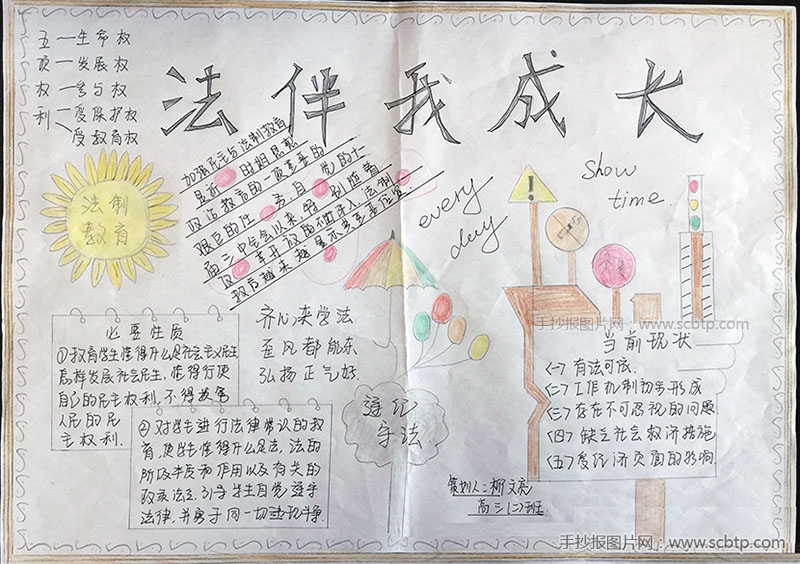 五 一生命权
项 一发展权
权 一参与权
利 一受保护权
受教育权
法伴我成长
法制
教育
加强民主与法制教育
是新 时期思想
政治教育的一项重要的
艰巨的任 务 自 党的十
届三中全会以来,特 别随着
改 革开放的不断深入,法制
教育越来越 显示 其重要位置.
every
day
Show
time.
必要性质
①教育学生懂得什么是社会主义民主
怎样发展社会民主,懂得行使
自己的民主权利,不得
人民的民
主权利.
②对学生进行法律常识的教
育,使学生懂得什么是法,法的
阶级本质和作用以及有关的
引导学生自觉遵守
法律,并勇于同一切 斗争
齐心来学法
歪风都能东
弘扬正气好.
遵纪
守法
手抄报图片网:www.scbtp.com
当前现状
(一)有法可依.
(二)工作机制初步形成
(三)存在不可忽视的问题
(四)缺乏社会救济措施
(五)受经济 负面的影响
策划人:柳文亮
高三(二)班
手抄报图片网:www.scbtp.com